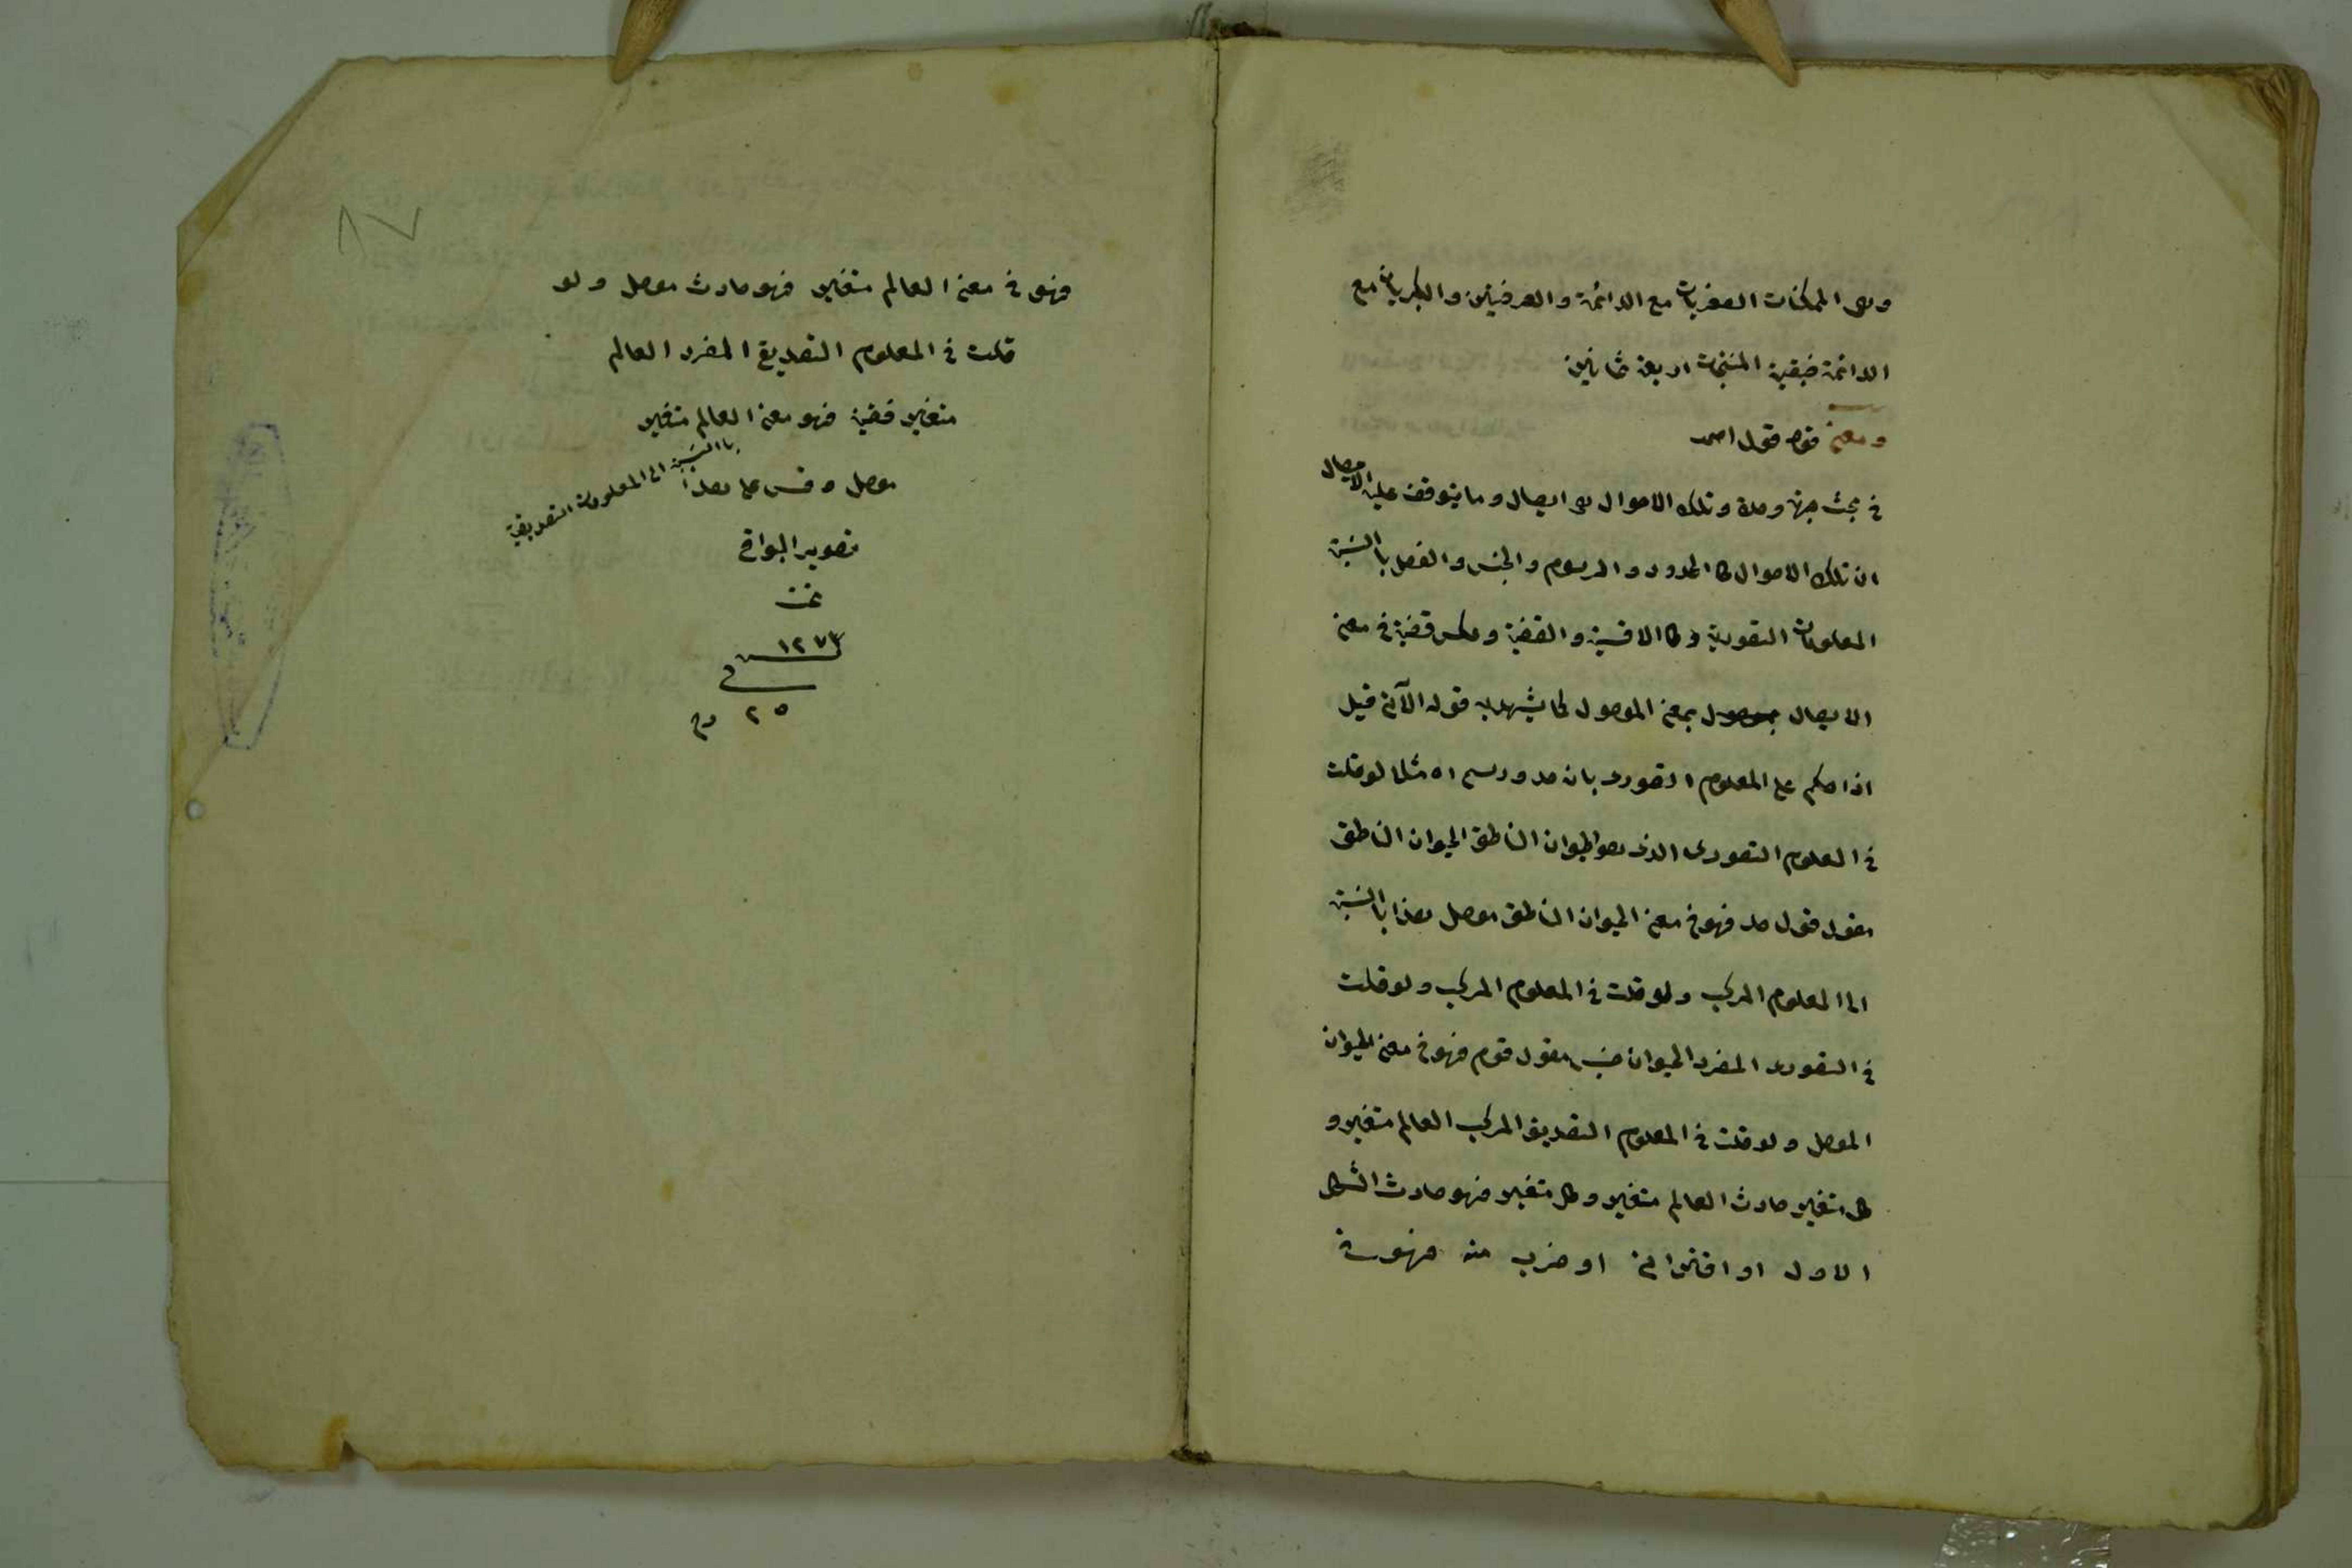 وهى الممكنات الصغريات مع الدائمة والعرفيتين والكبريات مع
الدائمة فبقية المنتجات اربعة ثمانين
ومعنى قوله قول احمد
فى بحث جهة وحدة وتلك الاحوال هى ايصال وما يتوقف عليه الايصال
ان تلك الاحوال كالحدود والرسوم والجنس والفصل باالنسبة
المعلومات التصورية وكالاقسية والقضية وعكس قضية فى معنى
الايصال بمعنى الموصول كما يشهد به قوله الآتى قبل
اذا حكم على المعلوم التصورى بانه حد ورسم اه مثلا لو قلت
فى المعلوم التصورى الذى هو الحيوان الناطق الحيوان الناطق
مقول قول حد فهو فى معنى الحيوان الناطق موصل هذا باالنسبة
الى المعلوم المركب ولو قلت فى المعلوم المركب ولو قلت
فى التصورى المفرد الحيوان جنس مقول قوم فهو فى معنى الحيوان
الموصل ولو قلت فى المعلوم التصديق المركب العالم متغير و
كل متغير حادث العالم متغير وكل متغير فهو حادث الشكل
الاول او اقترانى او ضرب منه فهو
فهو فى معنى العالم متغير فهو حادث موصل ولو
قلت فى المعلوم التصديق المفرد العالم
متغير قضية فهو معنى العالم متغير
موصل وقس على هذا باالنسبة الى المعلومات التصديقية
تصوير البواقى
تمت
١٢٧٣
فى
٢٥